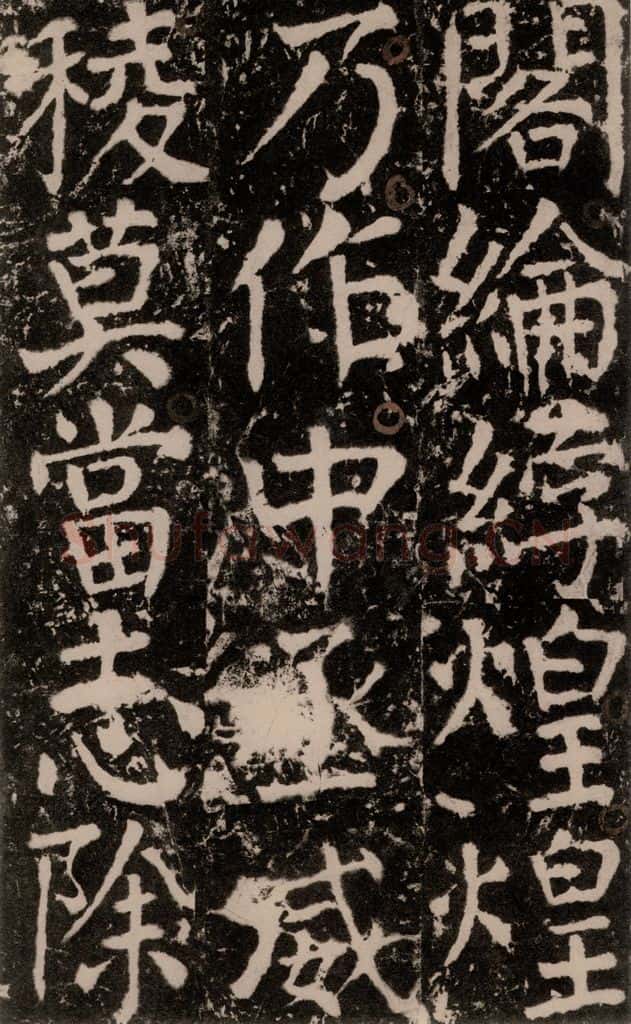 閣綸綍煌煌
乃作中丞威
稜莫當志除
Shufawang.CN